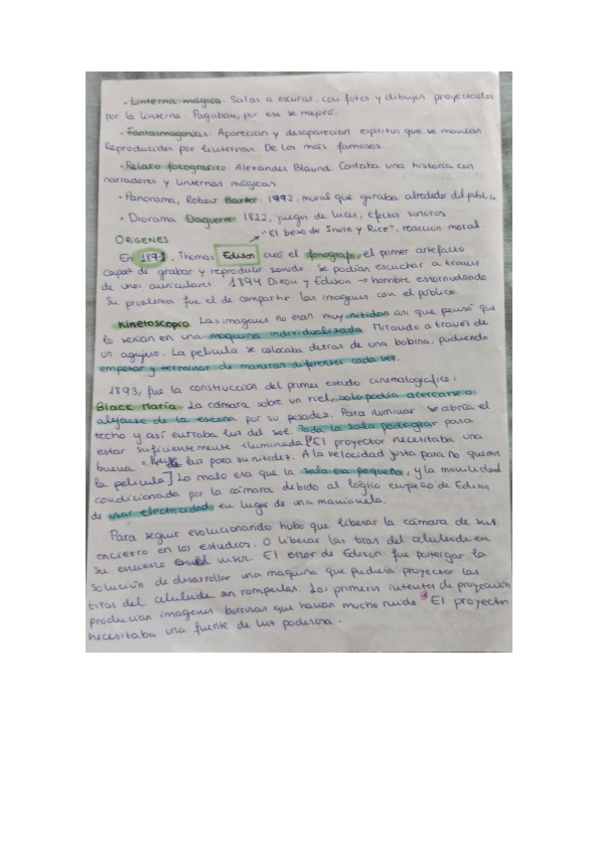 · Linterna mágica. Salas a oscuras, con fotos y dibujos proyectados
por la linterna. Pagaban, por eso se mejoró.
· Fantasmagorias. Aparecian y desaparecian espiritus que se movian.
Reproducidos por linternas. De los más famosos.
· Relato fotográfico. Alexander Contaba una historia con
narradores y linternas mágicas.
· Panorama, Robert 1992, mural que giraba alrededor del público.
· Diorama Daguerre 1822, juegos de luces, efectos sonoros.
"El beso de Irwin y Rice", reacción moral
ORÍGENES
En 1891, Thomas Edison creó el fonógrafo, el primer artefacto
capaz de grabar y reproducir sonido. Se podían escuchar a traves
de unos auriculares. 1894 Dixon y Edison → hombre estornudando.
Su problema fue el de compartir las imagenes con el público.
Kinetoscopio. Las imagenes no eran muy nitidas asi que pensó que
lo serían en una maquina individualizada. Mirando a través de
un agujero. La pelicula se colocaba detras de una bobina, pudiendo
empezar y terminar de maneras diferentes cada vez.
1893, fue la construcción del primer estudio cinematográfico:
Black María. La cámara sobre un riel, solo podía acercarse o
alejarse de la escena por su pesadez. Para iluminar se abría el
techo y así entraba luz del sol. Toda la sala podía girar para
estar suficientemente iluminada. [El proyector necesitaba una
buena luz para su nitidez. A la velocidad justa para no quemar
la película] Lo malo era que la sala era pequeña, y la movilidad
condicionada por la cámara debido al lógico empeño de Edison
de usar electricidad en lugar de una manivela.
Para seguir evolucionando hubo que liberar la cámara de sus
encierro en los estudios. O liberar las tiras del celuloide en
su encierro visor. El error de Edison fue postergar la
solución de desarrollar una maquina que pudiera proyectar las
tiras del celuloide sin romperlas. Los primeros intentos de proyección
producian imagenes borrosas que hacian mucho ruido. El proyector
necesitaba una fuente de luz poderosa.